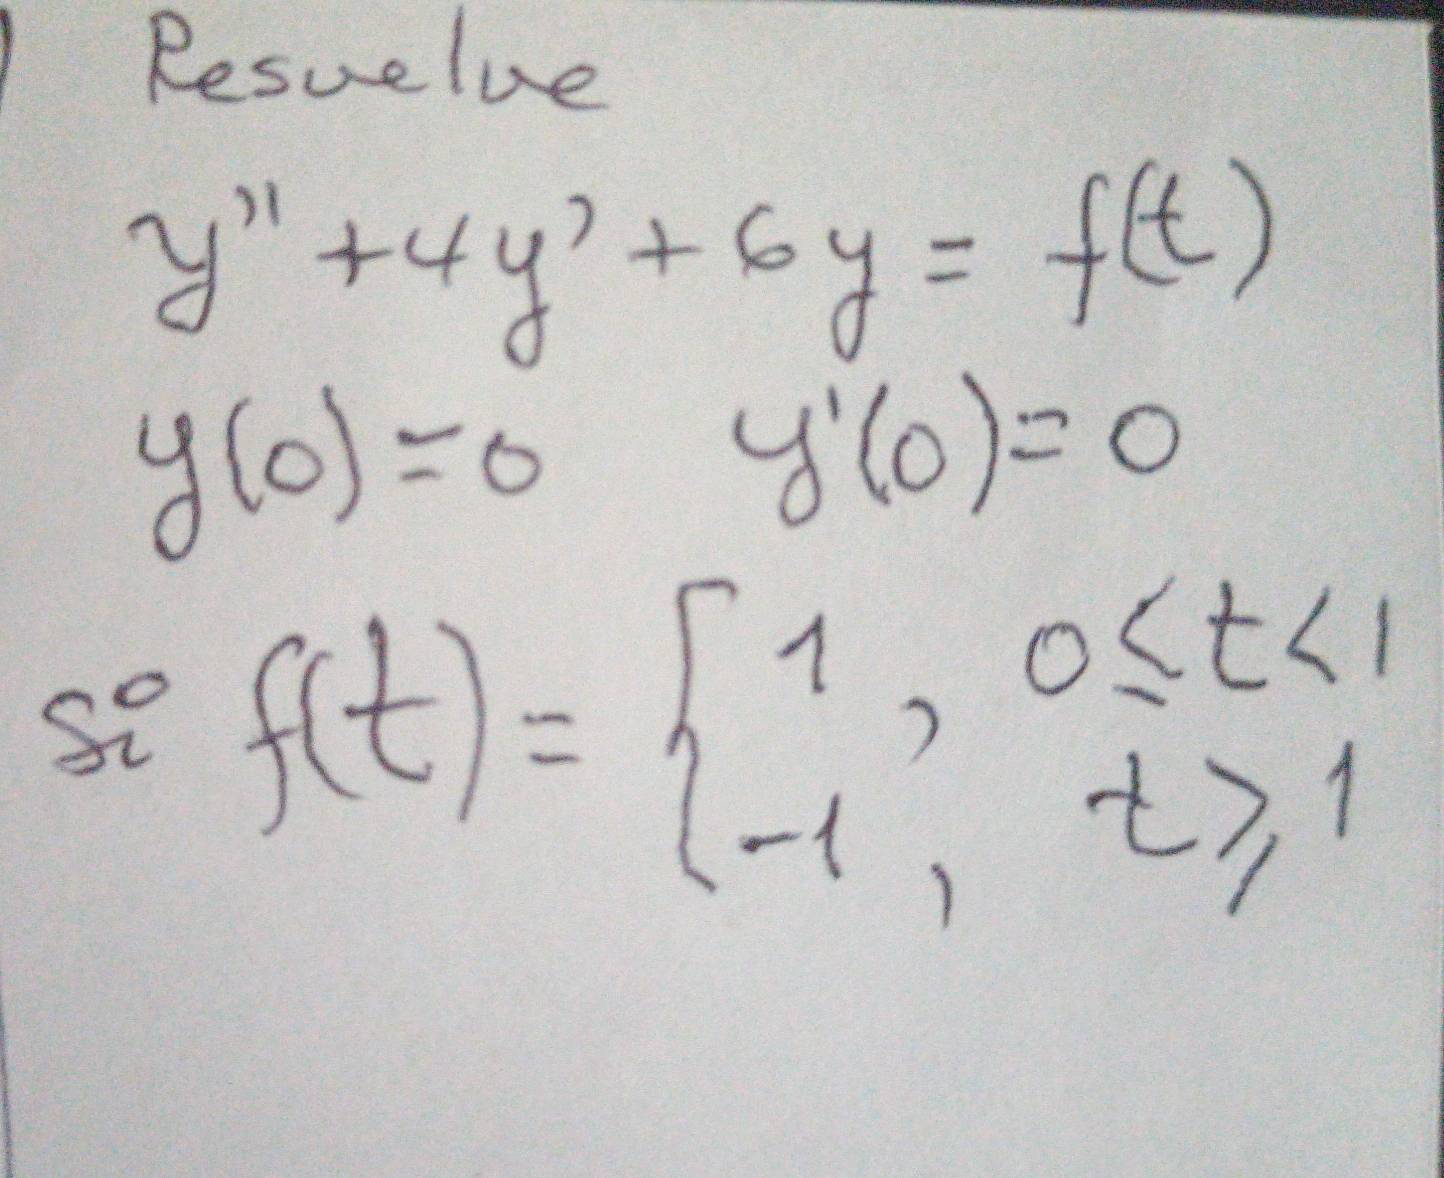 Resuelve
y'' + 4y' + 6y = f(t)
y(0) = 0 y'(0) = 0
si f(t) = { 1 , 0 ≤ t < 1
-1 , t ≥ 1